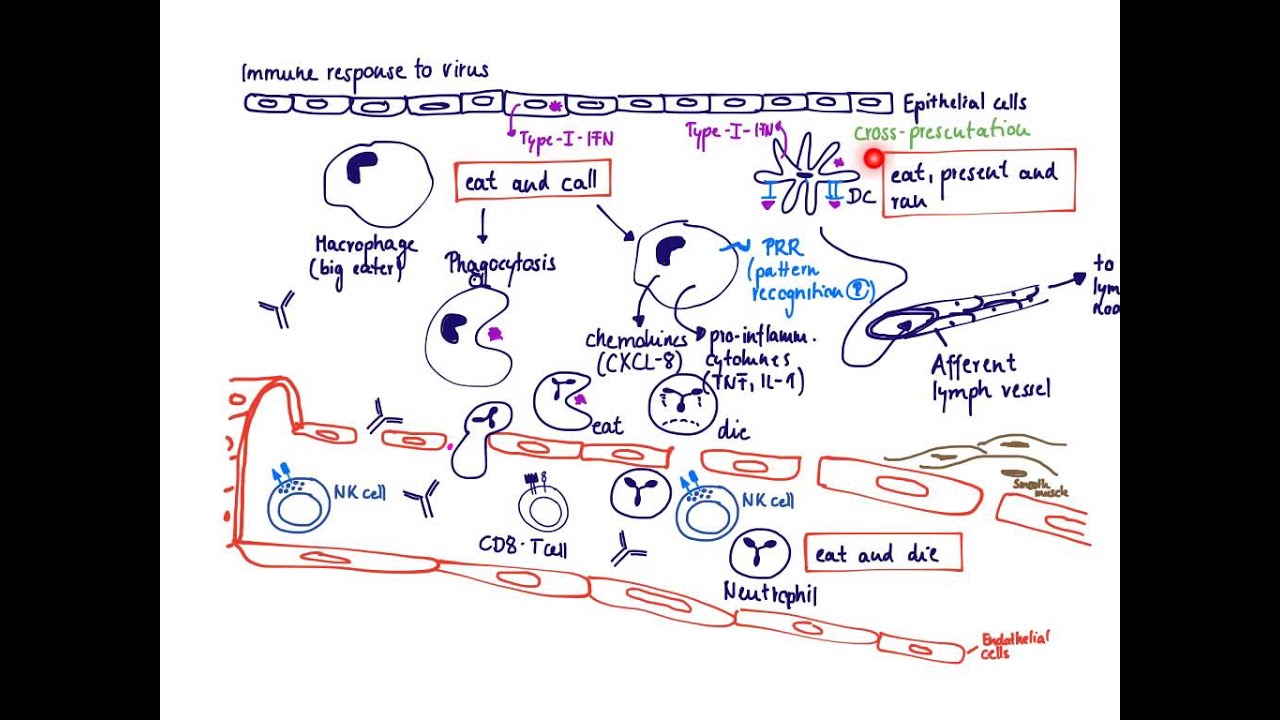 Immune response to virus
Epithelial cells
Type-I-IFN
Type-I-IFN
cross-presentation
eat and call
eat, present and
ran
DC
Macrophage
(big eater)
Phagocytosis
PRR
(pattern
recognition R)
to
lym
noo
chemokines
(CXCL-8)
pro-inflamm.
cytokines
(TNF, IL-1)
Afferent
lymph vessel
eat
die
Smooth
muscle
NK cell
8
CD8-Tcell
NK cell
eat and die
Neutrophil
Endothelial
cells